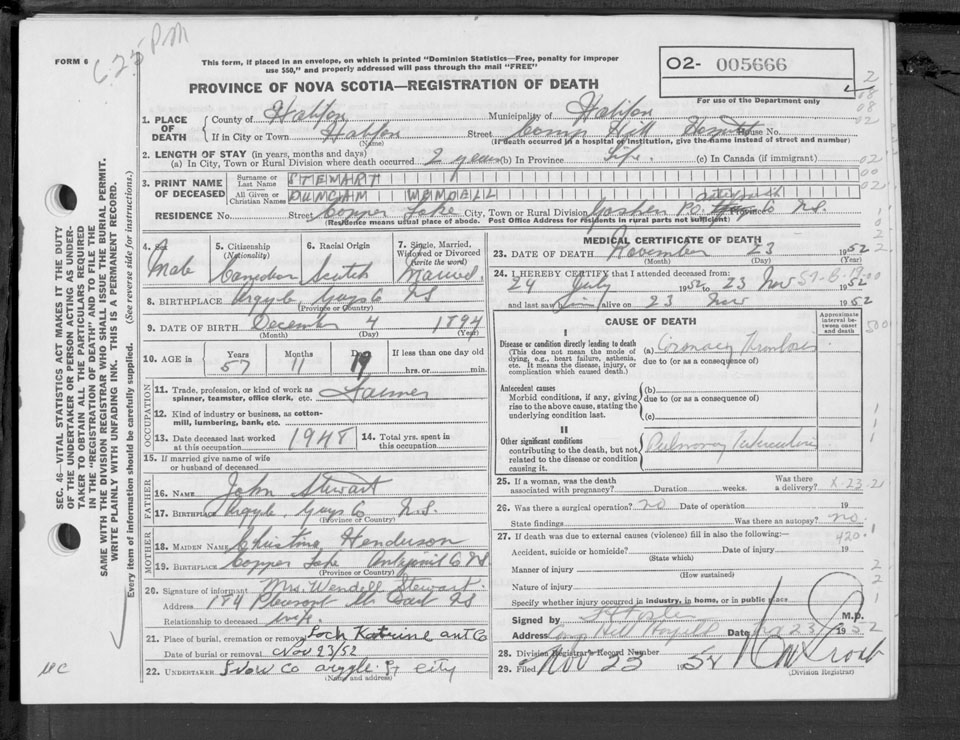 6 25 PM
FORM 6
This form, if placed in an envelope, on which is printed "Dominion Statistics—Free, penalty for improper
use $50," and properly addressed will pass through the mail "FREE"
02- 005666
For use of the Department only
PROVINCE OF NOVA SCOTIA—REGISTRATION OF DEATH
1. PLACE OF DEATH
County of Halifax Municipality of Halifax
If in City or Town Halifax Street Camp Hill House No.
(Name) (If death occurred in a hospital or institution, give the name instead of street and number)
2. LENGTH OF STAY (in years, months and days)
(a) In City, Town or Rural Division where death occurred 2 years (b) In Province Life. (c) In Canada (if immigrant)
3. PRINT NAME OF DECEASED
Surname or Last Name STEWART
All Given or Christian Names DUNCAN WENDELL
RESIDENCE No. Street Copper Lake City, Town or Rural Division Goshen Province N.S.
(Residence means usual place of abode. Post Office Address for residents in rural parts not sufficient)
4. Male
5. Citizenship (Nationality) Canadian
6. Racial Origin Scotch
7. Single, Married, Widowed or Divorced (write the word) Married.
8. BIRTHPLACE Argyle, Guys Co NS
(Province or Country)
9. DATE OF BIRTH December 4 1894
(Month) (Day) (Year)
10. AGE in Years 57 Months 11 Days 19 If less than one day old
hrs. or min.
OCCUPATION
11. Trade, profession, or kind of work as spinner, teamster, office clerk, etc. Farmer
12. Kind of industry or business, as cotton-mill, lumbering, bank, etc.
13. Date deceased last worked at this occupation 1948
14. Total yrs. spent in this occupation
15. If married give name of wife or husband of deceased
FATHER
16. NAME John Stewart
17. BIRTHPLACE Argyle, Guys Co N.S.
(Province or Country)
MOTHER
18. MAIDEN NAME Christine Henderson
19. BIRTHPLACE Copper Lake Antigonish Co NS
(Province or Country)
20. Signature of informant Mrs. Wendell Stewart.
Address 174 Pleasant St. Dart NS
Relationship to deceased wife.
21. Place of burial, cremation or removal Loch Katrine ant Co
Date of burial or removal Nov 23/52
22. UNDERTAKER Snow Co argyle St City
(Name and address)
MEDICAL CERTIFICATE OF DEATH
23. DATE OF DEATH November 23 1952
(Month) (Day) (Year)
24. I HEREBY CERTIFY that I attended deceased from:
24 July 1952 to 23 Nov 1952
and last saw him alive on 23 Nov 1952
CAUSE OF DEATH
Approximate interval between onset and death
I
Disease or condition directly leading to death
(This does not mean the mode of dying, e.g., heart failure, asthenia, etc. It means the disease, injury, or complication which caused death.)
(a) Coronary Thrombosis
due to (or as a consequence of)
Antecedent causes
Morbid conditions, if any, giving rise to the above cause, stating the underlying condition last.
(b)
due to (or as a consequence of)
(c)
II
Other significant conditions contributing to the death, but not related to the disease or condition causing it.
Pulmonary Tuberculosis
25. If a woman, was the death associated with pregnancy? Duration weeks. Was there a delivery?
X-23-2
26. Was there a surgical operation? no Date of operation 19
State findings Was there an autopsy? no
27. If death was due to external causes (violence) fill in also the following:— 420.1
Accident, suicide or homicide? Date of injury 19
(State which)
Manner of injury
(How sustained)
Nature of injury
Specify whether injury occurred in industry, in home, or in public place
Signed by M.D.
Address Camp Hill Hospital Date Nov 23 1952
28. Division Registrar's Record Number
29. Filed Nov 23 1952
(Division Registrar)
SEC. 46 VITAL STATISTICS ACT MAKES IT THE DUTY
OF THE UNDERTAKER OR PERSON ACTING AS UNDER-
TAKER TO OBTAIN ALL THE PARTICULARS REQUIRED
IN THE "REGISTRATION OF DEATH" AND TO FILE THE
SAME WITH THE DIVISION REGISTRAR WHO SHALL ISSUE THE BURIAL PERMIT.
WRITE PLAINLY WITH UNFADING INK. THIS IS A PERMANENT RECORD.
Every item of information should be carefully supplied. (See reverse side for instructions.)